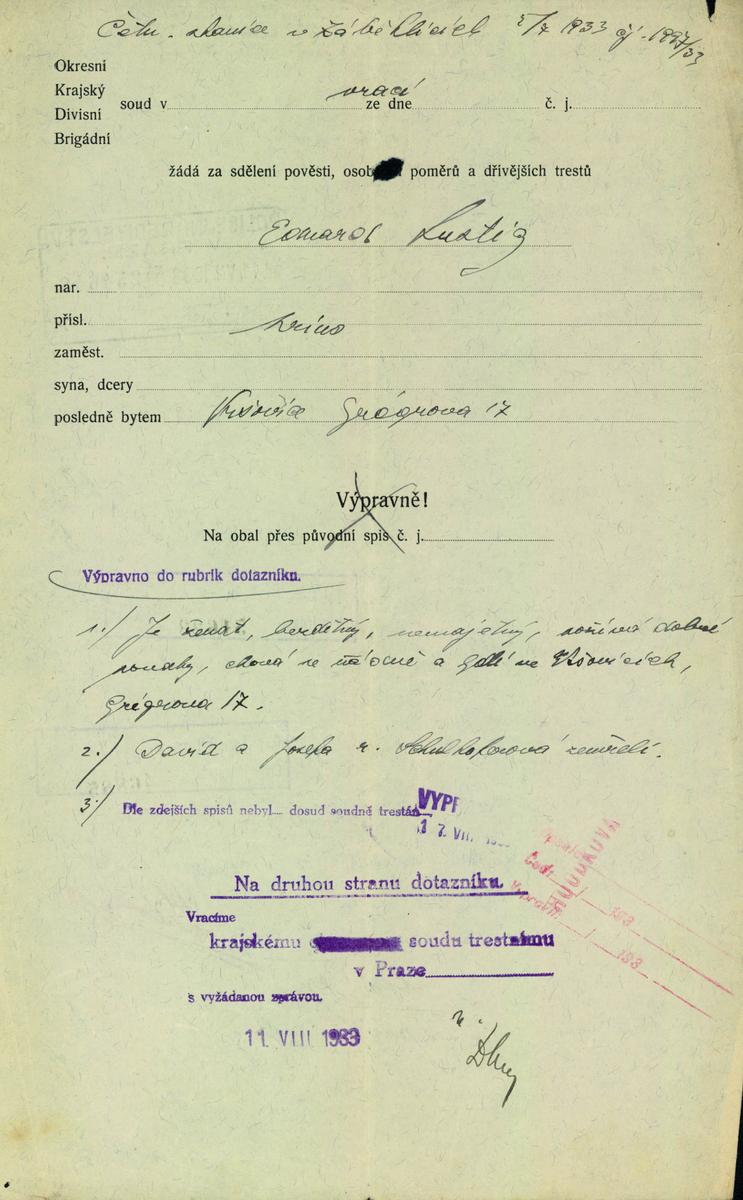 Četn. stanice v Záběhlicích 5/7 1933 čj. 1997/33
Okresní
Krajský
Divisní
Brigádní
soud v vrací ze dne č. j.
žádá za sdělení pověsti, osob poměrů a dřívějších trestů
Eduard Lustig
nar.
přísl.
zaměst.
syna, dcery
posledně bytem Vršovice Grégrova 17
Výpravně!
Na obal přes původní spis č. j.
Výpravno do rubrik dotazníku.
1.) Je ženat, bezdětný, nemajetný, požívá dobré
pověsti, chová se řádně a bydlí ve Vršovicích,
Grégrova 17.
2.) David a Josefa r. zemřelí.
3.) Dle zdejších spisů nebyl dosud soudně trestán
VYPR
17. VIII. 193
HUDOKOVÁ
193
193
Na druhou stranu dotazníku.
Vracíme
krajskému soudu trestnímu
v Praze
s vyžádanou zprávou.
11. VIII 1933